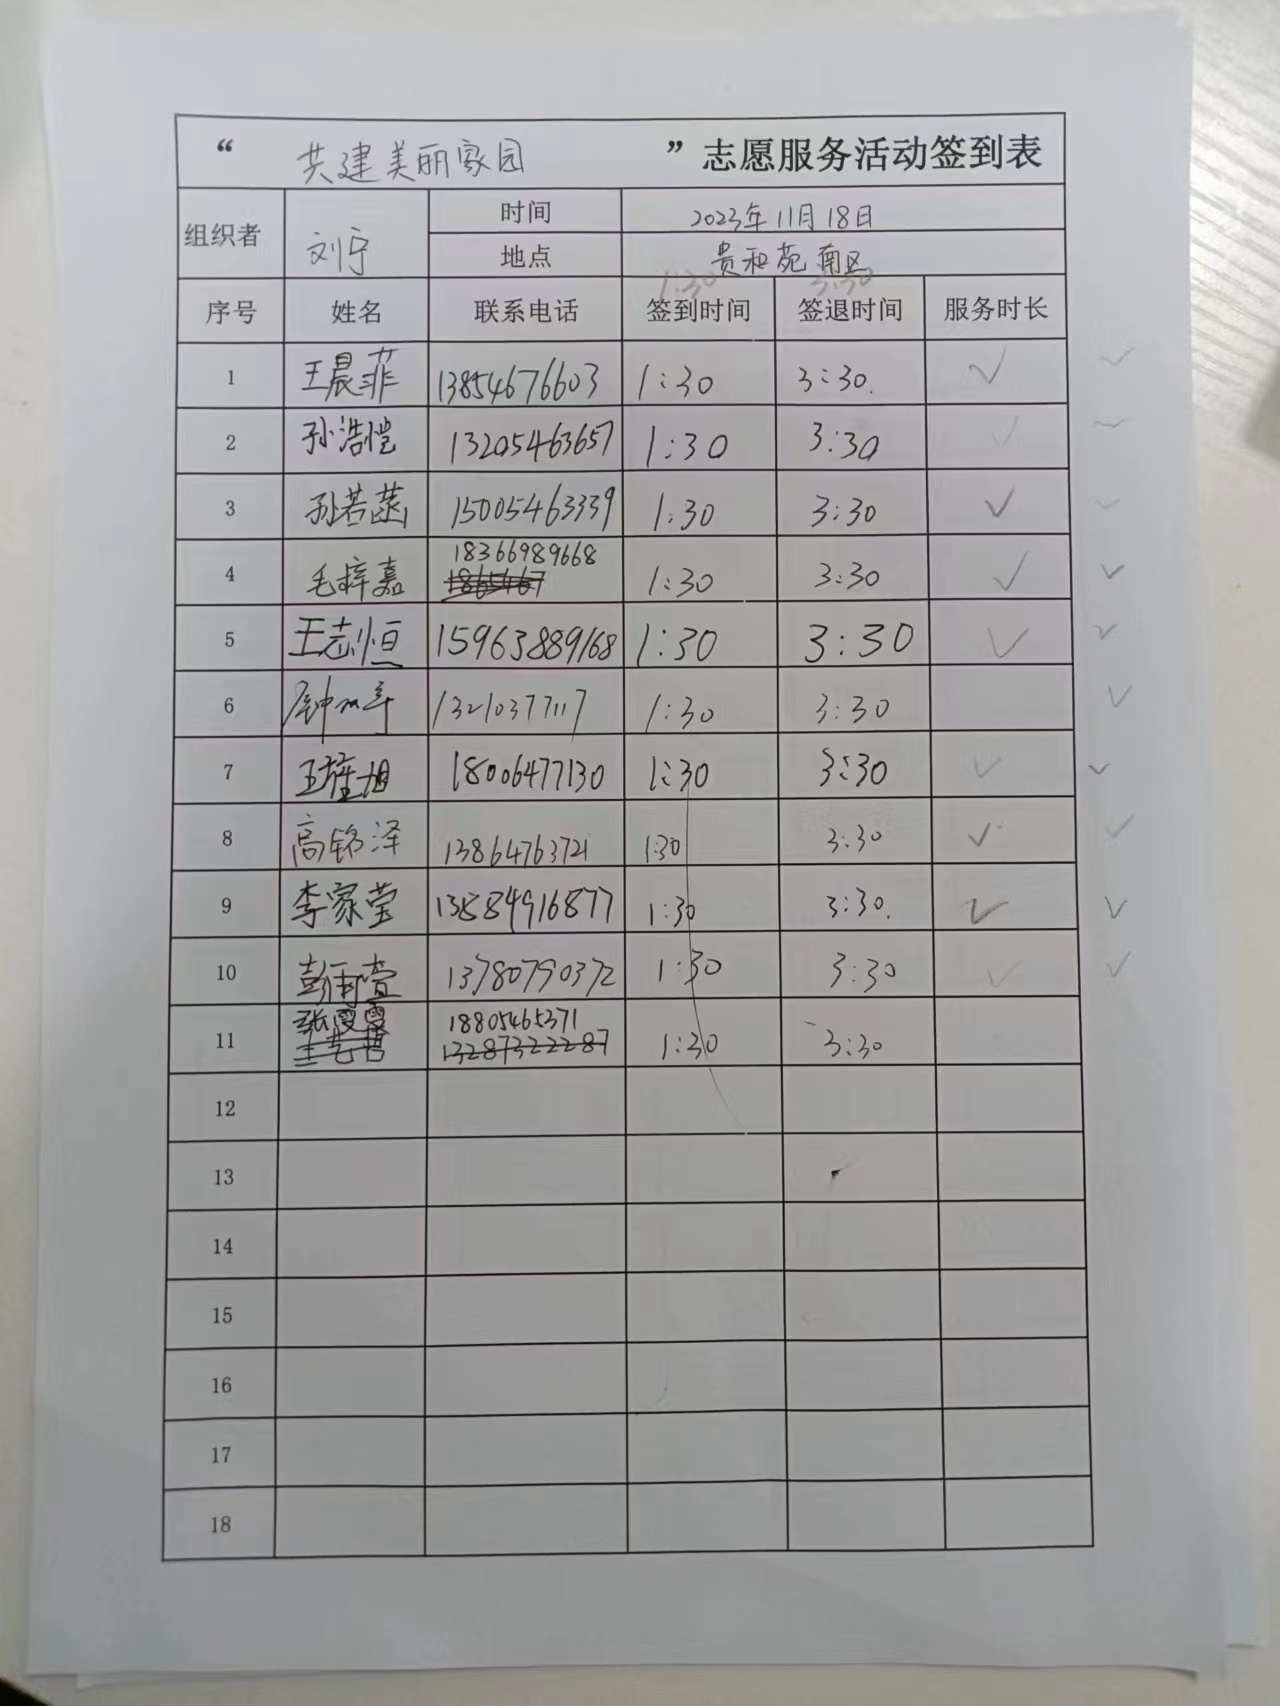 “ 共建美丽家园 ”志愿服务活动签到表
组织者 刘宁 时间 2023年11月18日
地点 贵和苑南区
1:30 3:30
序号 姓名 联系电话 签到时间 签退时间 服务时长
1 王晨菲 13854676603 1:30 3:30. ✓ ✓
2 孙浩恺 13205463657 1:30 3:30 ✓
3 孙若菡 15005463339 1:30 3:30 ✓ ✓
18366989668
4 毛梓嘉 1865467 1:30 3:30 ✓ ✓
5 王志恒 15963889168 1:30 3:30 ✓ ✓
6 13210377117 1:30 3:30 ✓
7 18006477130 1:30 3:30 ✓ ✓
8 高铭泽 13864763721 1:30 3:30 ✓ ✓
9 李家莹 13884916877 1:30 3:30. ✓ ✓
10 彭雨萱 13780790372 1:30 3:30 ✓ ✓
张雯雯 18805465371
11 王艺哲 13287322287 1:30 3:30
12
13
14
15
16
17
18